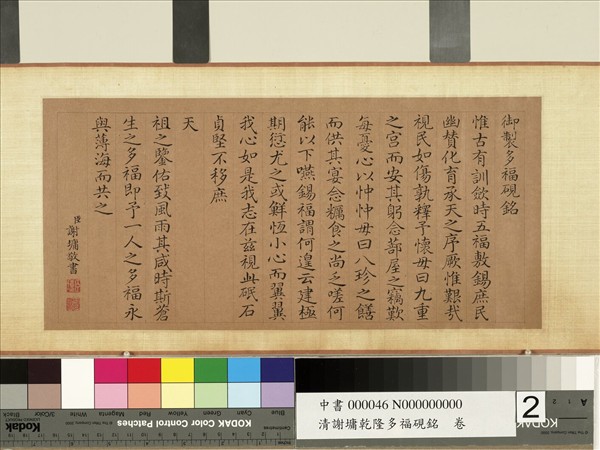 御製多福硯銘
惟古有訓斂時五福敷錫庶民
幽贊化育承天之序厥惟艱哉
視民如傷孰釋予懷毋曰九重
之宮而安其躬念蔀屋之竊歎
每憂心以忡忡毋曰八珍之饍
而供其宴念糲食之尚乏嗟何
能以下嚥錫福謂何遑云建極
期愆尤之或鮮恆小心而翼翼
我心如是我志在兹視此砥石
貞堅不移庶
天
祖之鑒佑致風雨其咸時斯蒼
生之多福即予一人之多福永
與薄海而共之
臣謝墉敬書
Black 3/Color White Magenta Red Yellow Green Cyan Blue
Kodak KODAK Color Control Patches
中書 000046 N000000000
清謝墉乾隆多福硯銘 卷
2
KODAK
A 1 2